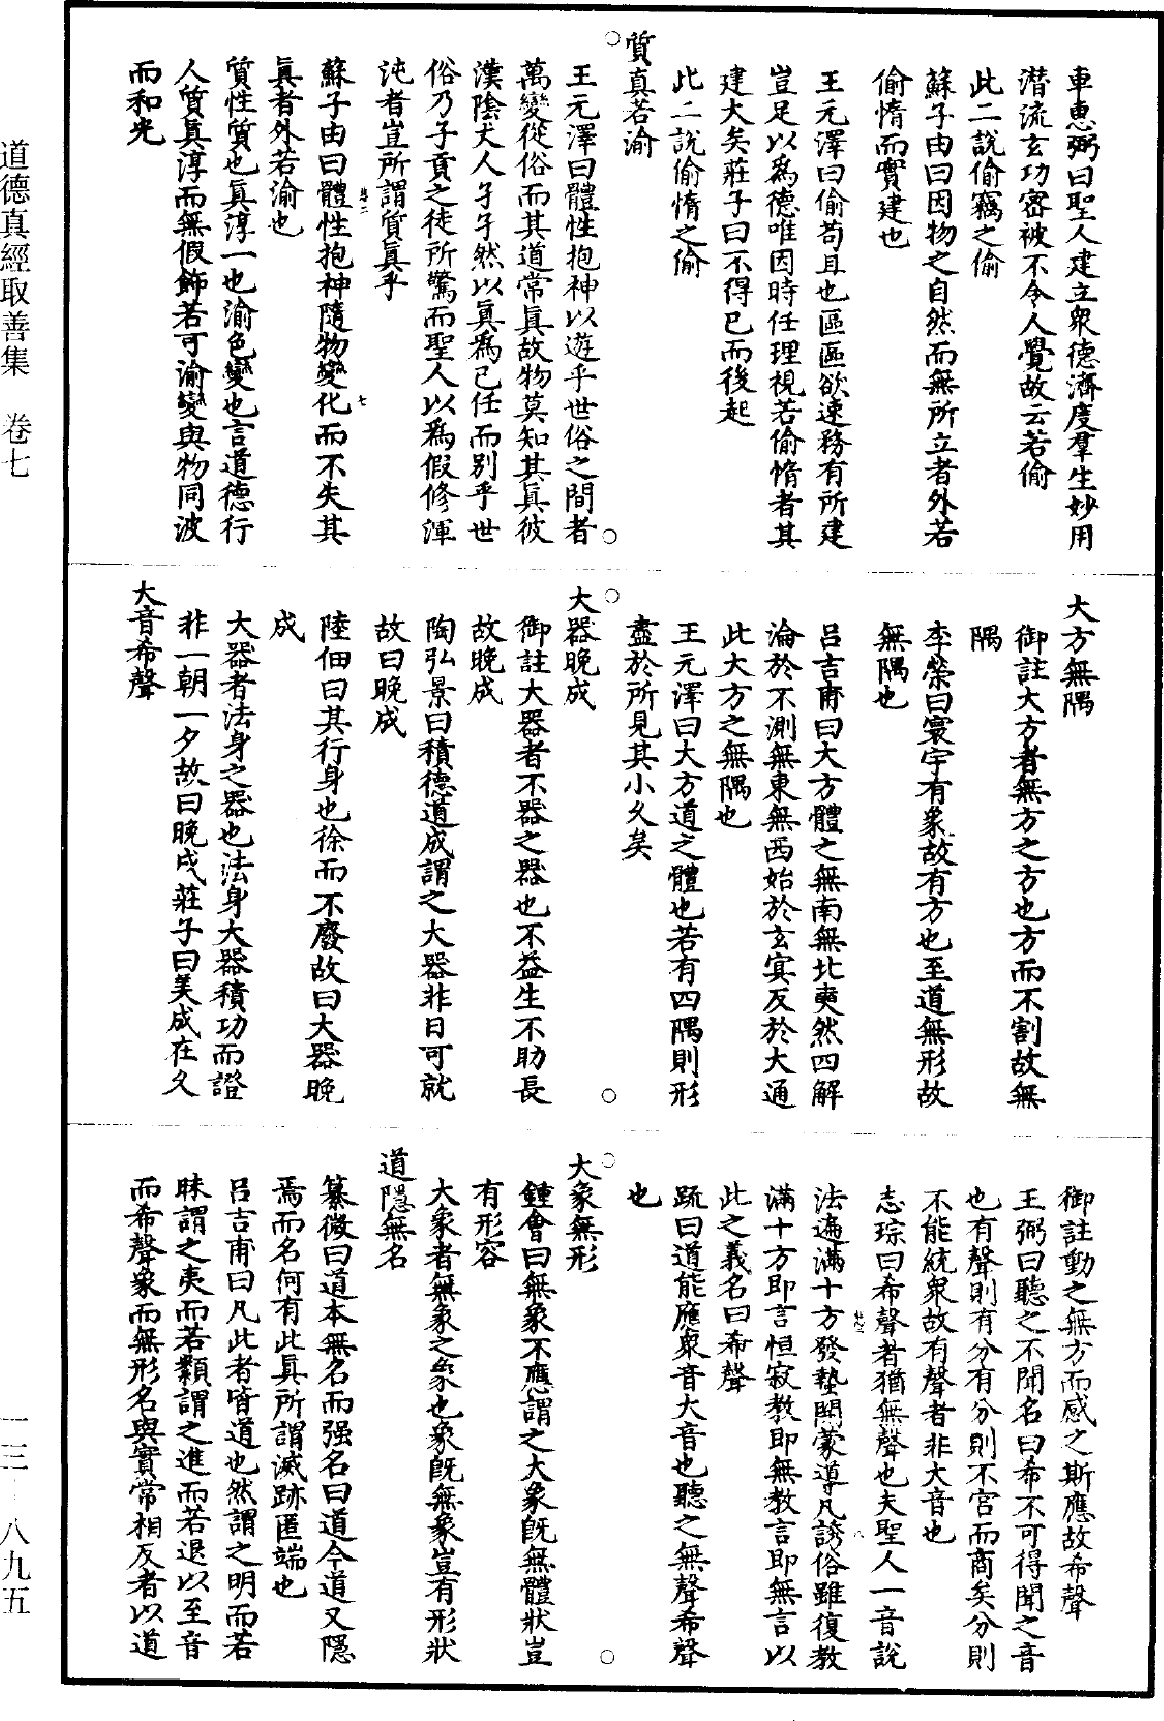 車惠弼曰聖人建立衆德濟度羣生妙用
潛流玄功密被不令人覺故云若偷
此二說偷竊之偷
蘇子由曰因物之自然而無所立者外若
偷惰而實建也
王元澤曰偷苟且也區區欲速務有所建
豈足以爲德唯因時任理視若偷惰者其
建大矣莊子曰不得已而後起
此二說偷惰之偷
質真若渝
王元澤曰體性抱神以遊乎世俗之間者
萬變從俗而其道常眞故物莫知其眞彼
漢陰丈人孑孑然以眞爲已任而別乎世
俗乃子貢之徒所驚而聖人以爲假修渾
沌者豈所謂質眞乎
蘇子由曰體性抱神隨物變化而不失其
眞者外若渝也
質性質也眞淳一也渝色變也言道德行
人質眞淳而無假飾若可渝變與物同波
而和光
大方無隅
御註大方者無方之方也方而不割故無
隅
李榮曰寰宇有象故有方也至道無形故
無隅也
呂吉甫曰大方體之無南無北奭然四解
淪於不測無東無西始於玄冥反於大通
此大方之無隅也
王元澤曰大方道之體也若有四隅則形
盡於所見其小久矣
大器晚成
御註大器者不器之器也不益生不助長
故晚成
陶弘景曰積德道成謂之大器非日可就
故曰晚成
陸佃曰其行身也徐而不廢故曰大器晚
成
大器者法身之器也法身大器積功而證
非一朝一夕故曰晚成莊子曰美成在久
大音希聲
御註動之無方而感之斯應故希聲
王弼曰聽之不聞名曰希不可得聞之音
也有聲則有分有分則不宮而商矣分則
不能統衆故有聲者非大音也
志琮曰希聲者猶無聲也夫聖人一音說
法遍滿十方發蟄開蒙導凡誘俗雖復教
滿十方即言恒寂教即無教言即無言以
此之義名曰希聲
疏曰道能應衆音大音也聽之無聲希聲
也
大象無形
鍾會曰無象不應謂之大象旣無體狀豈
有形容
大象者無象之象也象旣無象豈有形狀
道隱無名
纂微曰道本無名而强名曰道今道又隱
焉而名何有此眞所謂滅跡匿端也
呂吉甫曰凡此者皆道也然謂之明而若
昧謂之夷而若纇謂之進而若退以至音
而希聲象而無形名與實常相反者以道
道德真經取善集　卷七
一三—八九五